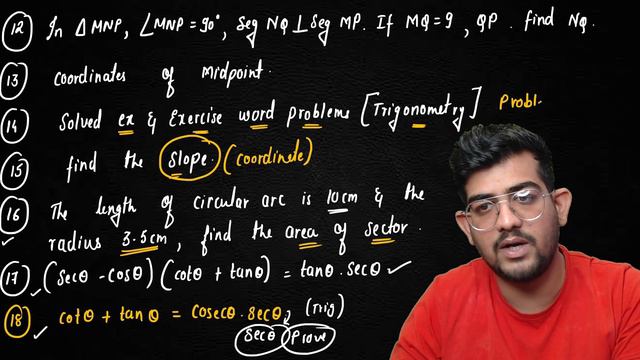 12 In △MNP, ∠MNP = 90°, Seg NQ ⊥ Seg MP. If MQ = 9, QP. find NQ.
13 Coordinates of midpoint.
14 Solved ex & Exercise word problems [Trigonometry] Probl.
15 find the Slope. (coordinate)
16 The length of circular arc is 10cm & the
radius 3.5cm, find the area of sector.
17 (secθ - cosθ)(cotθ + tanθ) = tanθ.secθ
18 cotθ + tanθ = cosecθ.secθ, (Trig)
secθ Prove